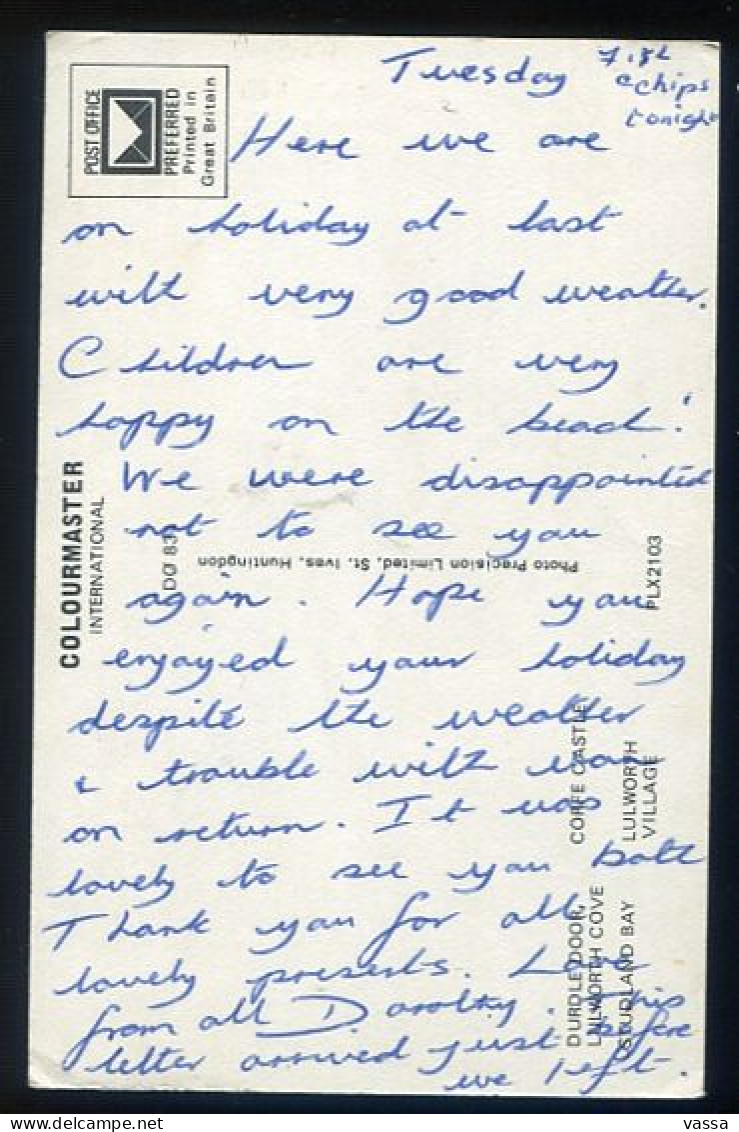 Tuesday
Fish
& chips
tonight
Here we are
on holiday at last
with very good weather.
Children are very
happy on the beach!
We were disappointed
not to see you
again. Hope you
enjoyed your holiday
despite the weather
& trouble with van
on return. It was
lovely to see you both
Thank you for all
lovely presents. Love
from all Dorothy. This
letter arrived just before
we left.
POST OFFICE
PREFERRED
Printed in
Great Britain
COLOURMASTER
INTERNATIONAL
DO 83
Photo Precision Limited, St. Ives, Huntingdon
PLX2103
DURDLE DOOR, CORFE CASTLE
LULWORTH COVE
STUDLAND BAY LULWORTH
VILLAGE
vassa